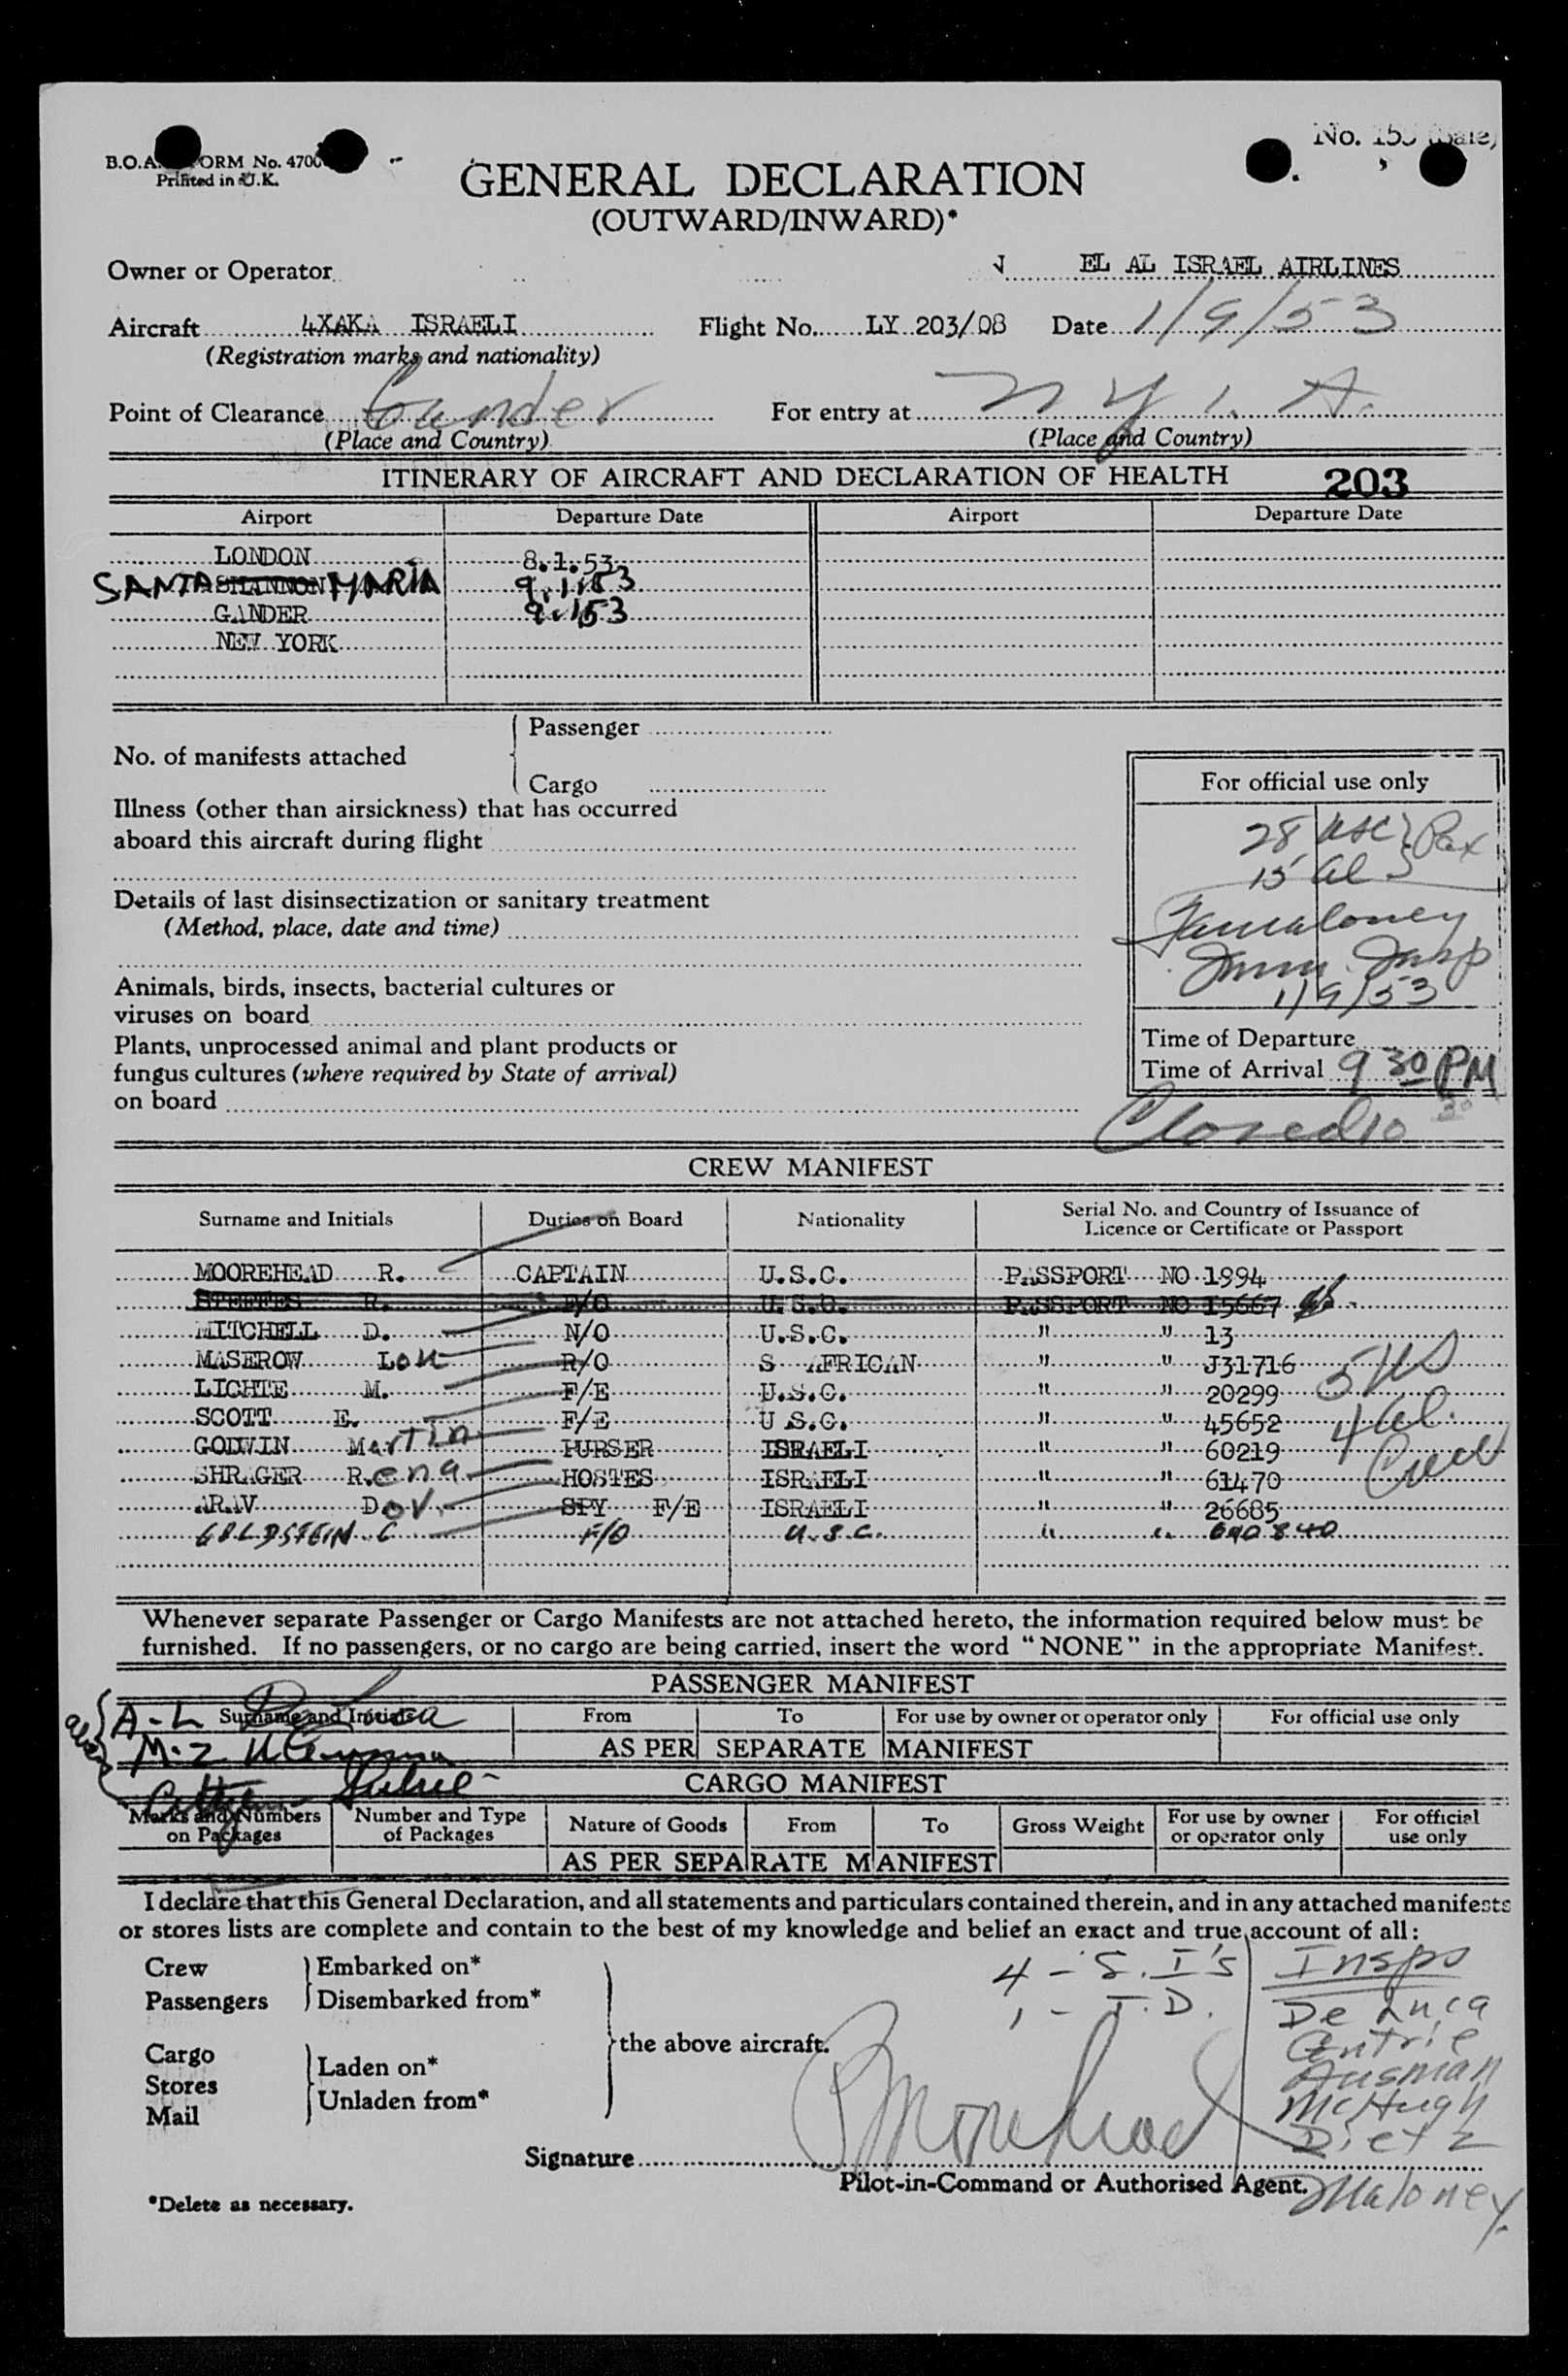 B.O.A. FORM No. 4700
Printed in U.K.
No. 153
GENERAL DECLARATION
(OUTWARD/INWARD)*
Owner or Operator EL AL ISRAEL AIRLINES
Aircraft 4XAKA ISRAELI Flight No. LY 203/08 Date 1/9/53
(Registration marks and nationality)
Point of Clearance Gander For entry at N Y I. A.
(Place and Country) (Place and Country)
ITINERARY OF AIRCRAFT AND DECLARATION OF HEALTH 203
Airport Departure Date Airport Departure Date
LONDON 8.1.53
SANTA SHANNON MARIA 9.1.53
GANDER 9.1.53
NEW YORK
Passenger
No. of manifests attached
Cargo
Illness (other than airsickness) that has occurred
aboard this aircraft during flight
Details of last disinsectization or sanitary treatment
(Method, place, date and time)
Animals, birds, insects, bacterial cultures or
viruses on board
Plants, unprocessed animal and plant products or
fungus cultures (where required by State of arrival)
on board
For official use only
28 USC } Pax
15 Al
Maloney
Imm. Insp
1/9/53
Time of Departure
Time of Arrival 9 30 PM
Closed 10 30
CREW MANIFEST
Surname and Initials Duties on Board Nationality Serial No. and Country of Issuance of Licence or Certificate or Passport
MOOREHEAD R. CAPTAIN U.S.C. PASSPORT NO 1994
STEFFES R. F/O U.S.C. PASSPORT NO 15667
MITCHELL D. N/O U.S.C. " " 13
MASEROW Lou R/O S AFRICAN " " J31716
LICHTE M. F/E U.S.C. " " 20299
SCOTT E. F/E U.S.C. " " 45652
GODWIN Martin PURSER ISRAELI " " 60219
SHRAGER Rena HOSTES ISRAELI " " 61470
ARAV Dov SPY F/E ISRAELI " " 26685
GOLDSTEIN C F/O U.S.C. " " 690840
5 US
4 Al.
Crew
Whenever separate Passenger or Cargo Manifests are not attached hereto, the information required below must be
furnished. If no passengers, or no cargo are being carried, insert the word "NONE" in the appropriate Manifest.
PASSENGER MANIFEST
A-L De Luca
Surname and Initials From To For use by owner or operator only For official use only
M-Z
AS PER SEPARATE MANIFEST
CARGO MANIFEST
Marks and Numbers on Packages Number and Type of Packages Nature of Goods From To Gross Weight For use by owner or operator only For official use only
AS PER SEPARATE MANIFEST
I declare that this General Declaration, and all statements and particulars contained therein, and in any attached manifests
or stores lists are complete and contain to the best of my knowledge and belief an exact and true account of all:
Crew Embarked on*
Passengers Disembarked from*
the above aircraft.
Cargo
Stores Laden on*
Mail Unladen from*
4 - S. I's
1 - I. D.
Insps
De Luca
Ausman
McHugh
Dietz
Maloney
Signature R Moorehead
Pilot-in-Command or Authorised Agent.
*Delete as necessary.